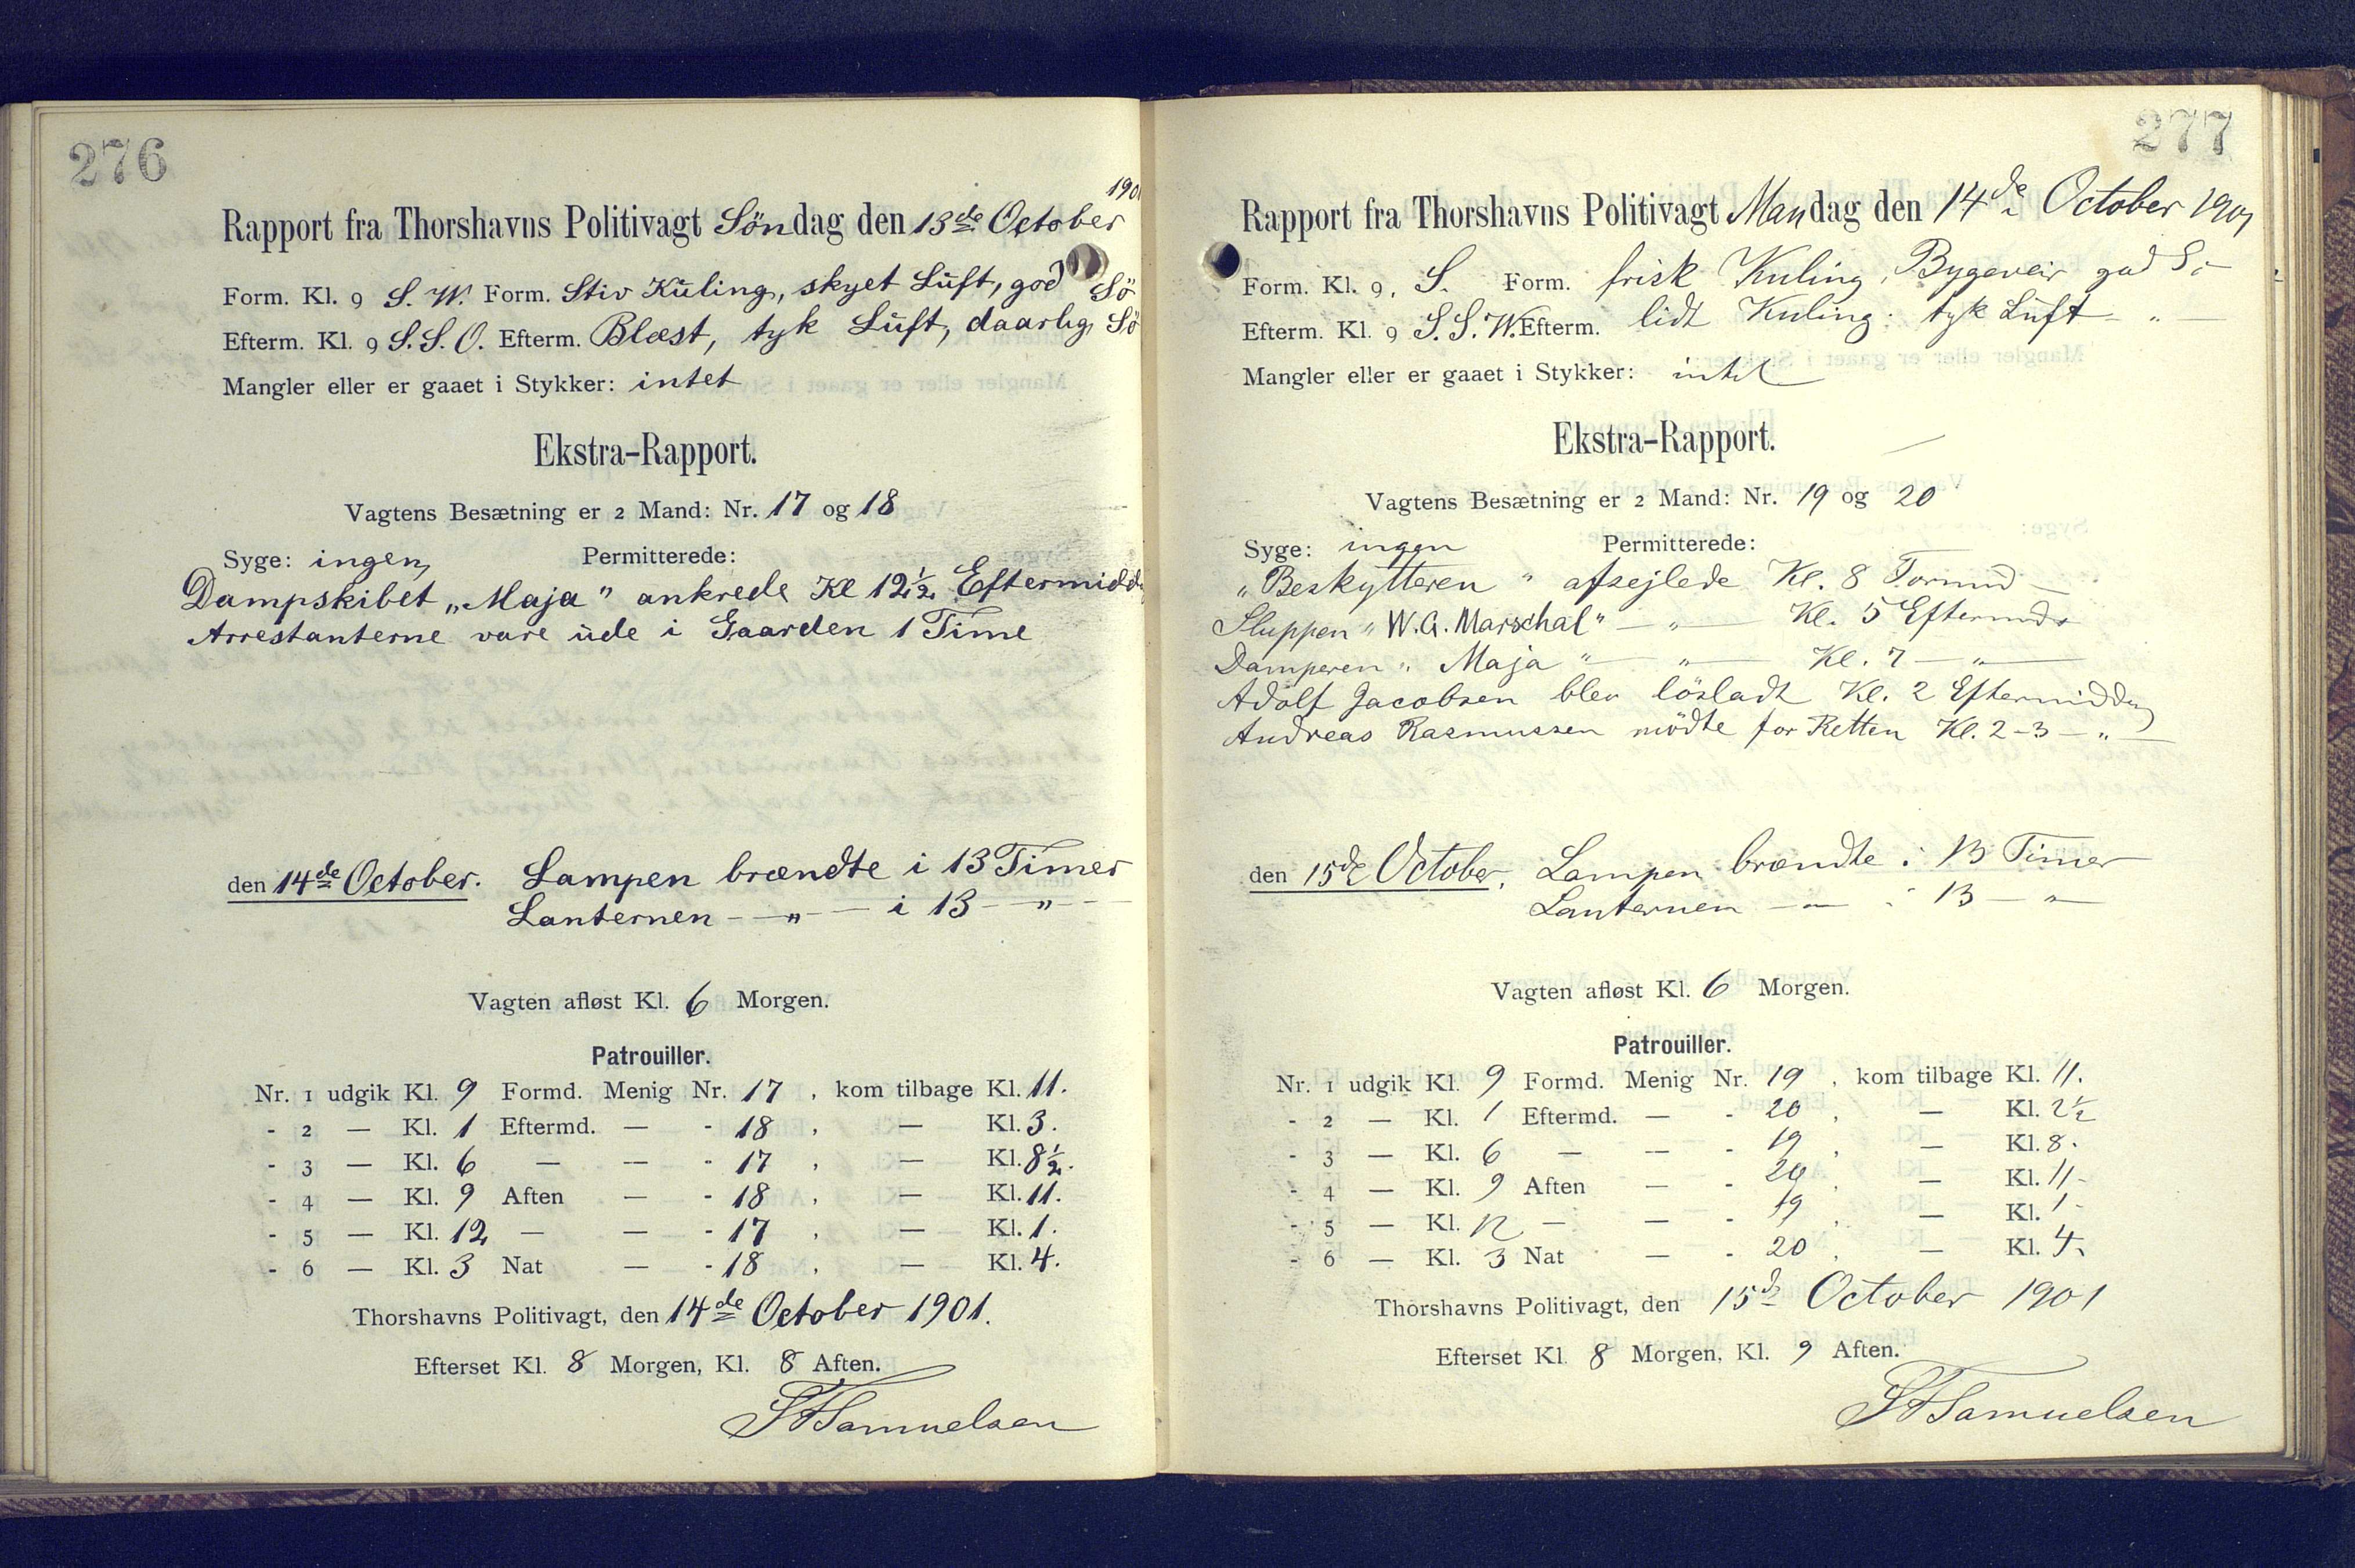 276
1901
Rapport fra Thorshavns Politivagt Søndag den 13de October
Form. Kl. 9 S. W. Form. Stiv Kuling, skyet Luft, god Sö
Efterm. Kl. 9 S. S. O. Efterm. Blæst, tyk Luft, daarlig Sö
Mangler eller er gaaet i Stykker: intet
Ekstra-Rapport.
Vagtens Besætning er 2 Mand: Nr. 17 og 18
Syge: ingen, Permitterede:
Dampskibet „Maja" ankrede Kl 12½ Eftermidd
Arrestanterne vare ude i Gaarden 1 Time
den 14de October. Lampen brændte i 13 Timer
Lanternen — „ — i 13 — „ —
Vagten afløst Kl. 6 Morgen.
Patrouiller.
Nr. 1 udgik Kl. 9 Formd. Menig Nr. 17, kom tilbage Kl. 11.
- 2 — Kl. 1 Eftermd. — - 18, — Kl. 3.
- 3 — Kl. 6 — — - 17, — Kl. 8½.
- 4 — Kl. 9 Aften — - 18, — Kl. 11.
- 5 — Kl. 12 — — - 17, — Kl. 1.
- 6 — Kl. 3 Nat — - 18, — Kl. 4.
Thorshavns Politivagt, den 14de October 1901.
Efterset Kl. 8 Morgen, Kl. 8 Aften.
Samuelsen
277
Rapport fra Thorshavns Politivagt Mandag den 14de October 1901
Form. Kl. 9, S. Form. frisk Kuling, Bygeveir god Sö
Efterm. Kl. 9 S. S. W. Efterm. lidt Kuling: tyk Luft — „ —
Mangler eller er gaaet i Stykker: intet
Ekstra-Rapport.
Vagtens Besætning er 2 Mand: Nr. 19 og 20
Syge: ingen Permitterede:
„Beskytteren" afsejlede Kl. 8 Formd
Sluppen „W. G. Marschal" — „ — Kl. 5 Eftermd
Damperen „Maja" — „ — Kl. 7 — „ —
Adolf Jacobsen blev lösladt Kl. 2 Eftermiddag
Andreas Rasmussen mödte for Retten Kl. 2-3 — „ —
den 15de October. Lampen brændte i 13 Timer
Lanternen — „ — i 13 — „ —
Vagten afløst Kl. 6 Morgen.
Patrouiller.
Nr. 1 udgik Kl. 9 Formd. Menig Nr. 19, kom tilbage Kl. 11.
- 2 — Kl. 1 Eftermd. — - 20, — Kl. 2½
- 3 — Kl. 6 — — - 19, — Kl. 8.
- 4 — Kl. 9 Aften — - 20, — Kl. 11-
- 5 — Kl. 12 — — - 19, — Kl. 1-
- 6 — Kl. 3 Nat — - 20, — Kl. 4.
Thorshavns Politivagt, den 15de October 1901
Efterset Kl. 8 Morgen, Kl. 9 Aften.
Samuelsen